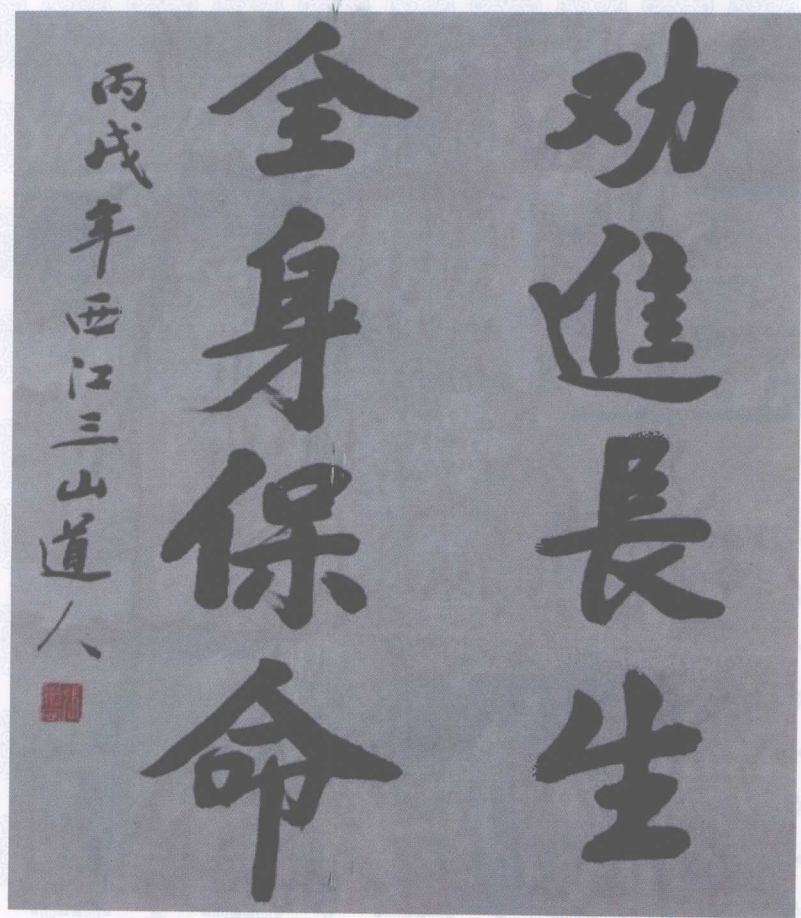 劝進長生
全身保命
丙戌年西江三山道人